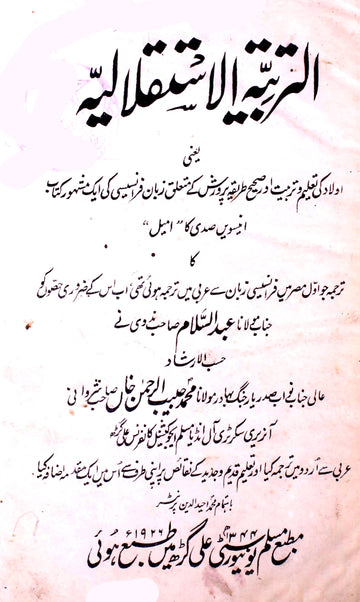 التربیۃ الاستقلالیہ
یعنی
اولاد کی تعلیم و تربیت اور صحیح طریقہ پرورش کے متعلق زبان فرانسیسی کی ایک مشہور کتاب
انیسویں صدی کا "امیل"
کا
ترجمہ جو اوّل مصر میں فرانسیسی زبان سے عربی میں ترجمہ ہوئی تھی، اب اس کے ضروری حصوں کو
جناب مولانا عبد السّلام صاحب ندوی نے
حسب الارشاد
عالی جناب نواب صدر یار جنگ بہادر مولانا محمد حبیب الرحمن خاں صاحب شروانی
آنریری سکرٹری آل انڈیا مسلم ایجوکیشنل کانفرنس علی گڑھ
عربی سے اُردو میں ترجمہ کیا اور تعلیم قدیم و جدید کے نقائص پر اپنی طرف سے اُس میں ایک مقدمہ اضافہ کیا۔
باہتمام محمد احید الدین پرنٹر
۱۳۴۴ھ ۱۹۲۶ء
مطبع مسلم یونیورسٹی علی گڑھ میں طبع ہوئی